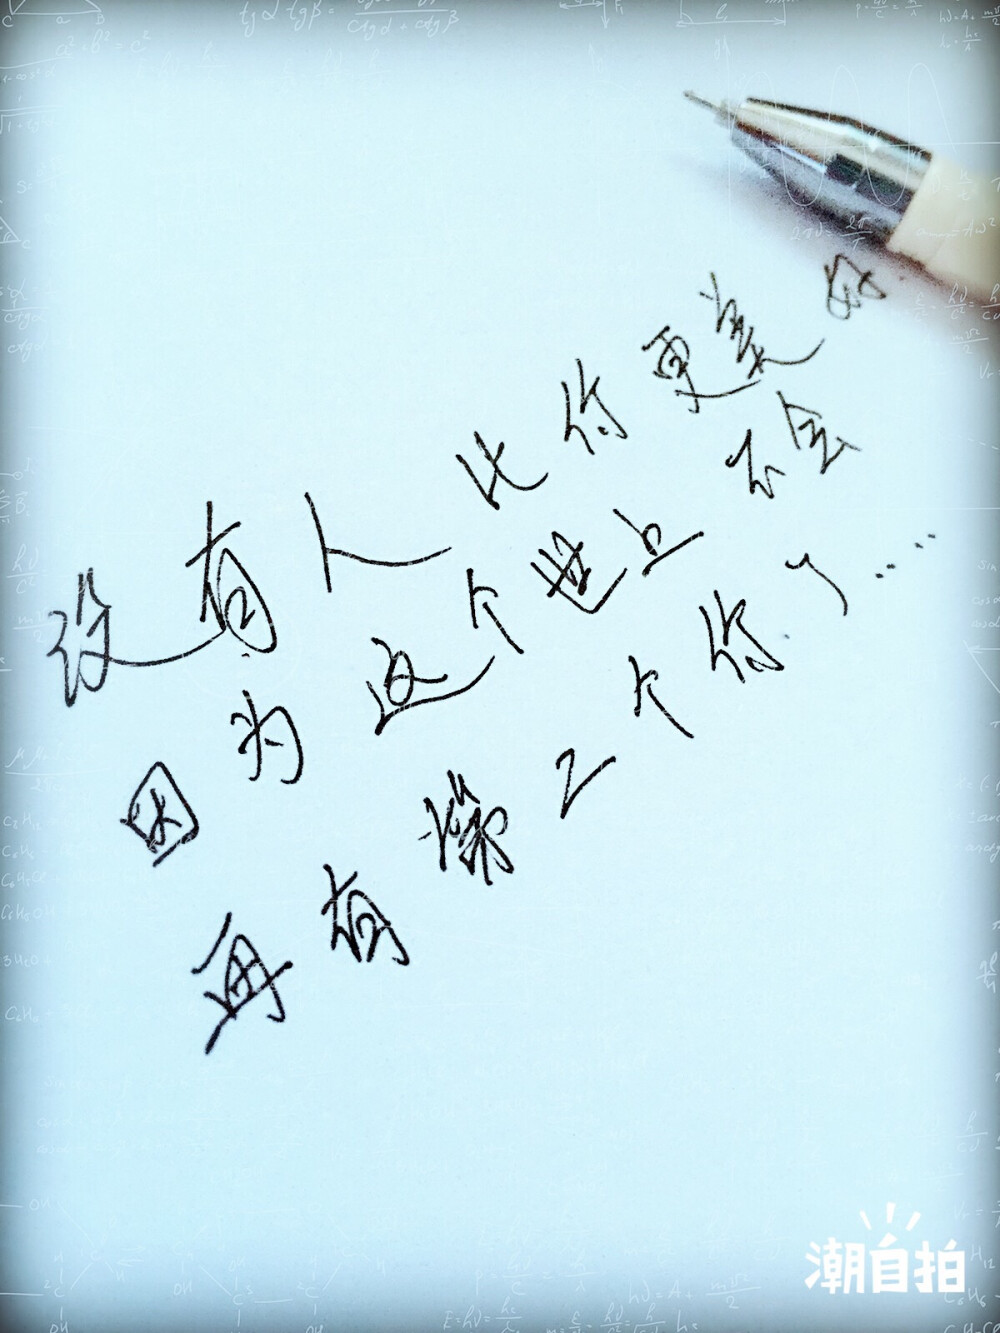 没有人比你更美好
因为这个世上不会
再有第2个你了……
潮自拍